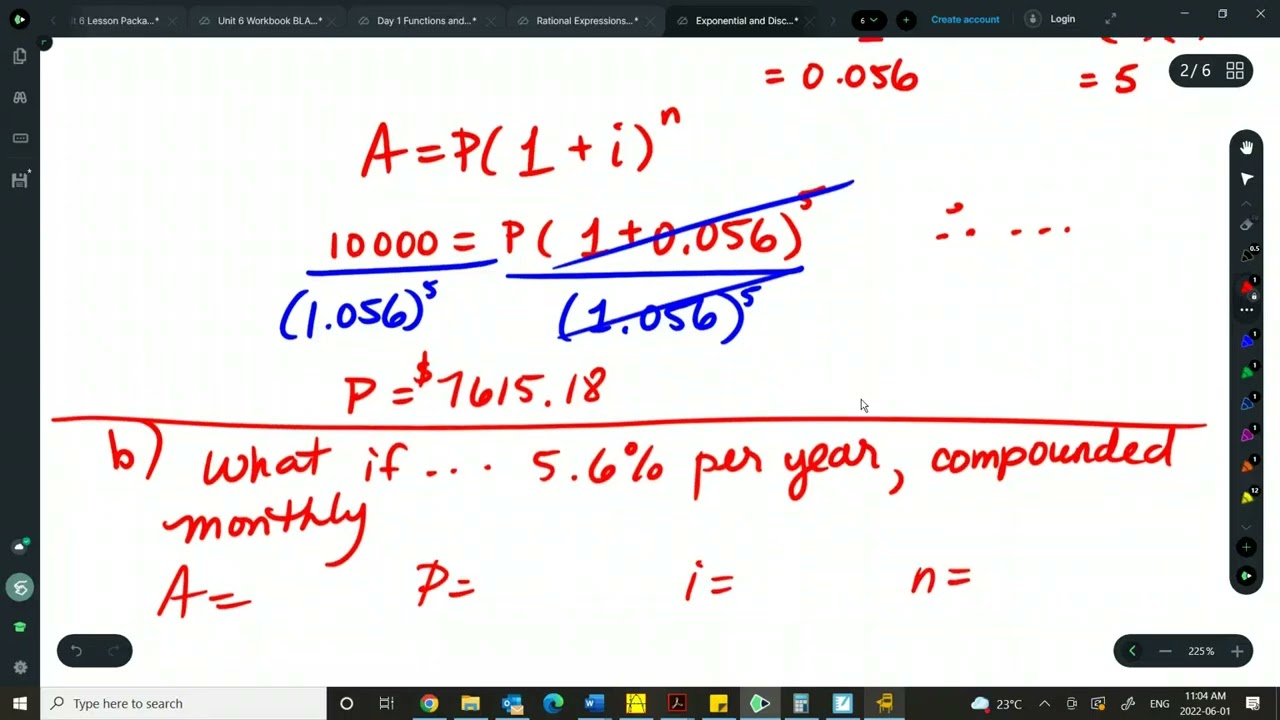 it 6 Lesson Packa...*
Unit 6 Workbook BLA...*
Day 1 Functions and...*
Rational Expressions...*
Exponential and Disc...*
6
Create account
Login
= 0.056
= 5
2/6
A = P(1 + i)^n
10000 = P(1+0.056)^5
∴ ...
(1.056)^5 (1.056)^5
P = $7615.18
b) What if ... 5.6% per year, compounded
monthly
A= P= i= n=
225%
Type here to search
23°C
ENG
11:04 AM
2022-06-01